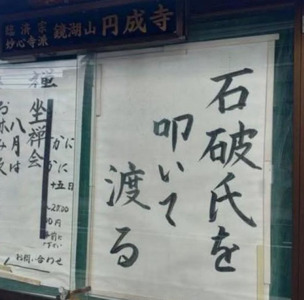 臨済宗
妙心寺派
鏡湖山
円成寺
石破氏を
叩いて
渡る
坐禅会
八月は
お休み
十五日
お問い合わせ